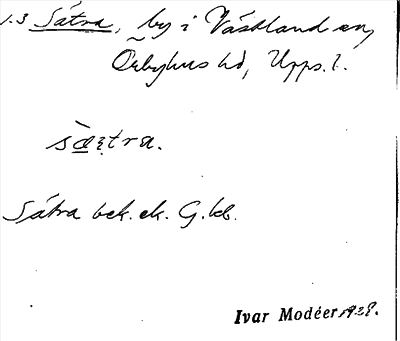 1.3 Sätra, by i Västland sn,
Örbyhus hd, Upps. l.
sæ̀tra.
Sätra bek. ek. G. kb.
Ivar Modéer 1928.